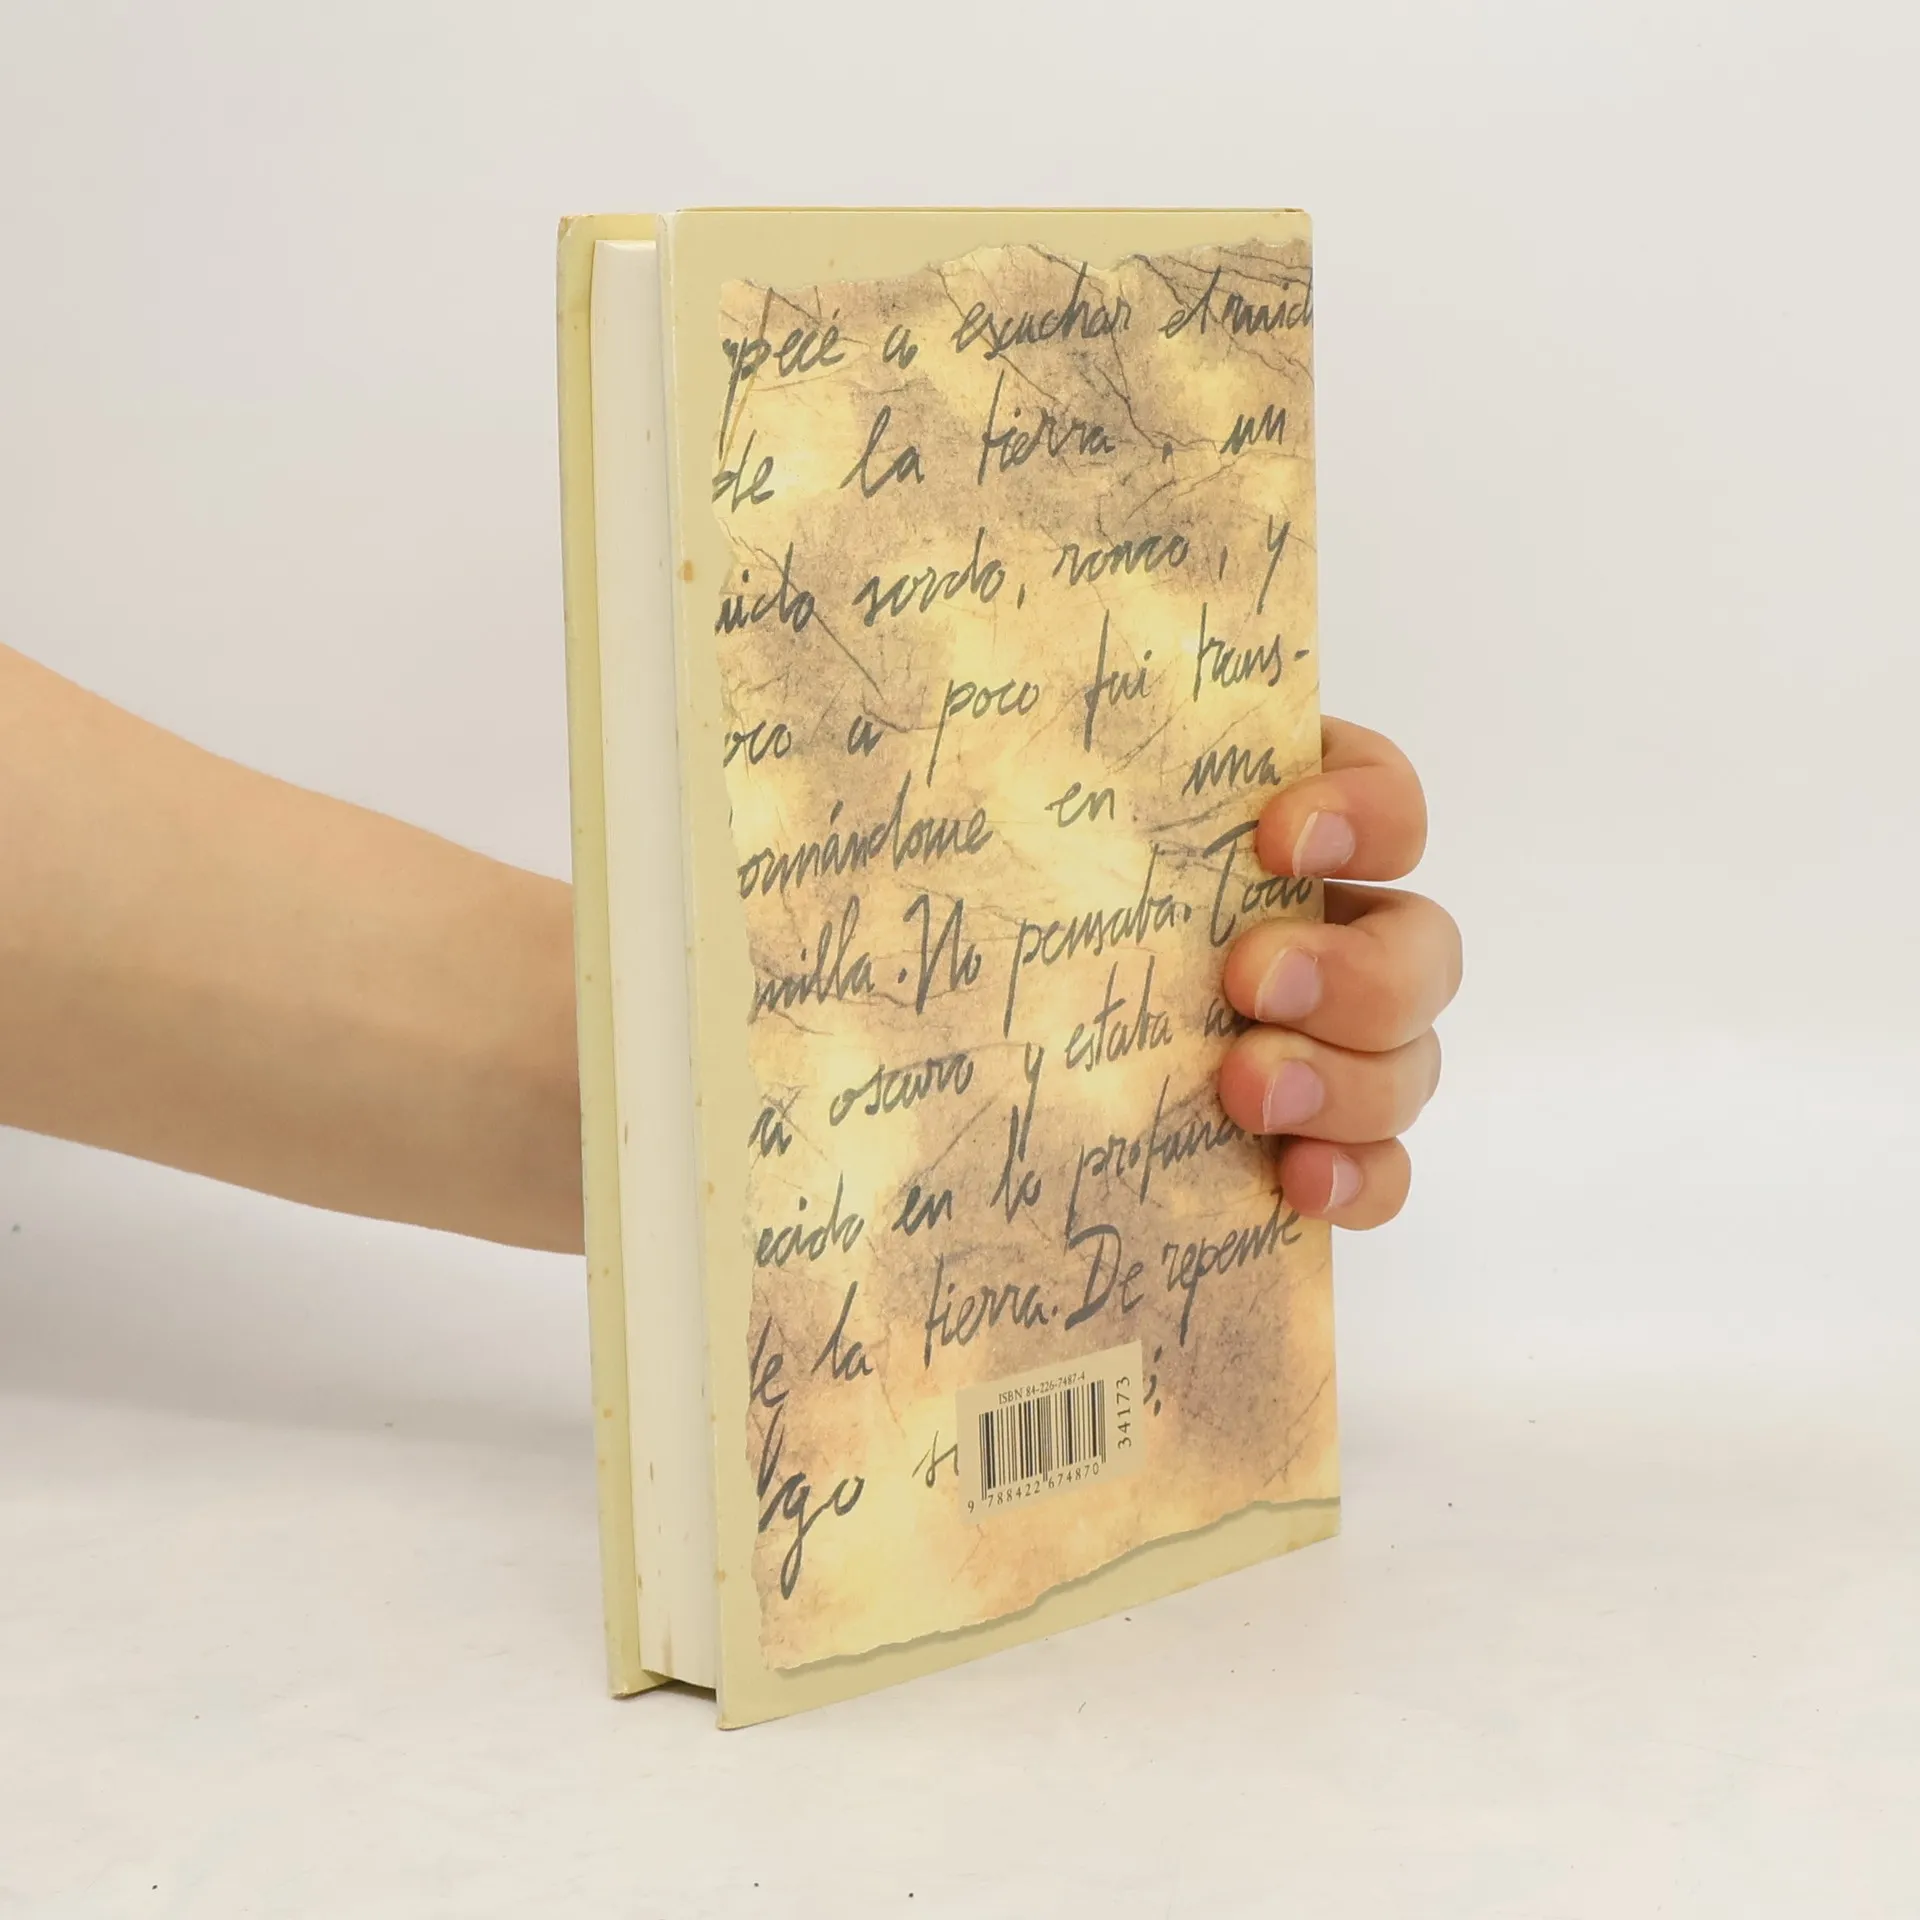 mpecé a escuchar el ruid
de la tierra, un
uido sordo, ronco, y
oco a poco fui trans-
ormándome en una
milla. No pensaba. Todo
ra oscuro y estaba
ecido en lo profund
de la tierra. De repente
lgo s
ISBN 84-226-7487-4
9 788422 674870
34173